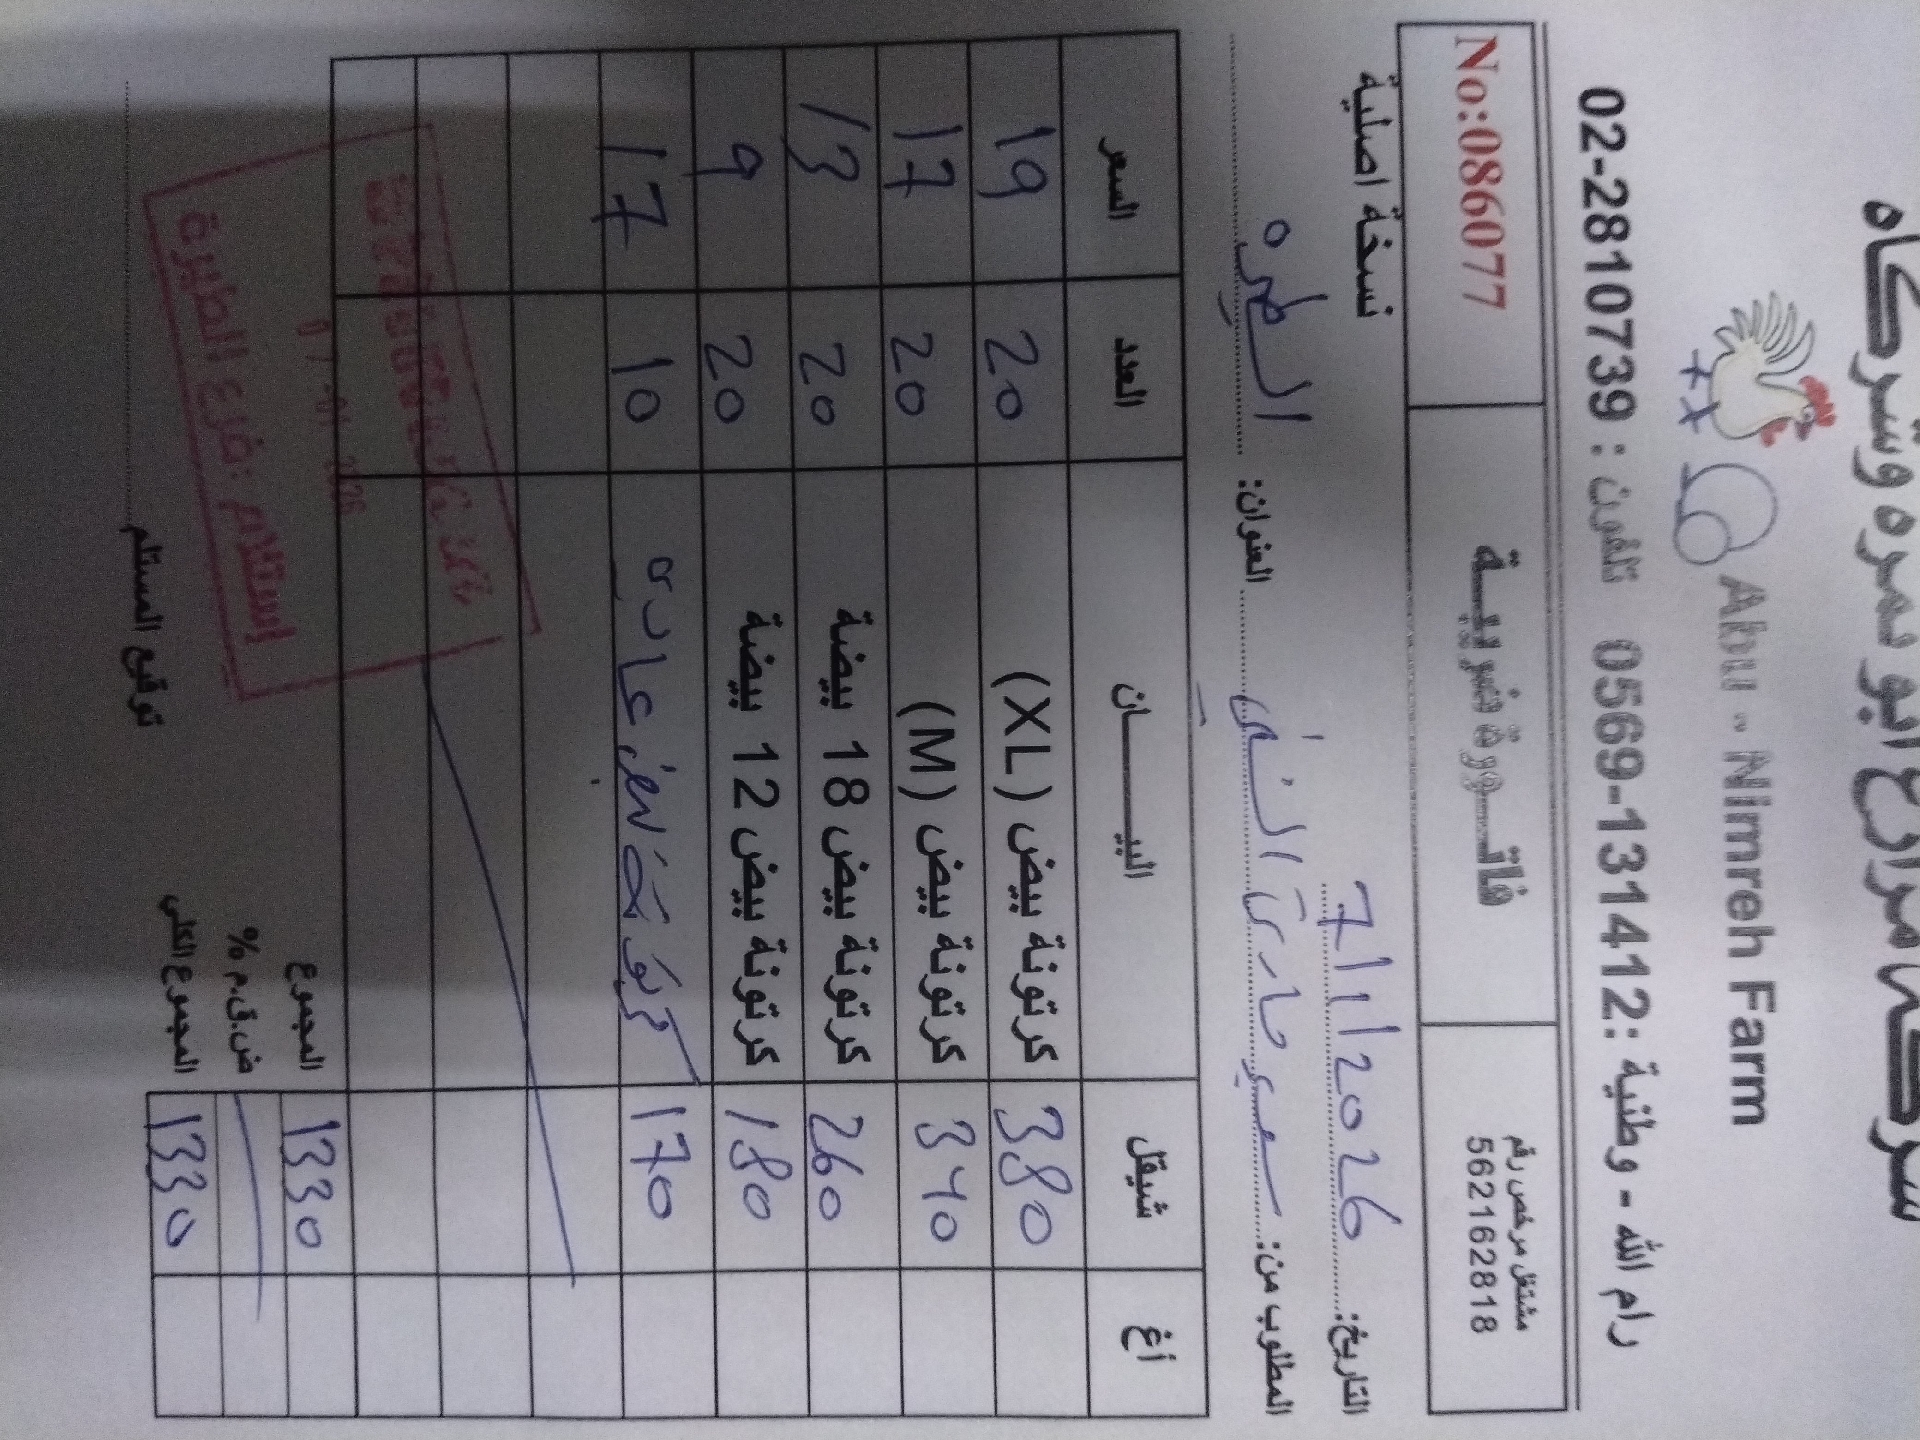 شركة مزارع ابو نمره وشركاه
Abu - Nimreh Farm
رام الله - وطنية :0569-131412 تلفون : 02-2810739
مشتغل مرخص رقم
562162818
فاتـــورة ضريبيـــة
No:086077
التاريخ: 7/1/2026
نسخة اصلية
المطلوب من: سوبر ماركت العنوان: الطيره
أغ شيقل البيـــــان العدد السعر
380 كرتونة بيض (XL) 20 19
340 كرتونة بيض (M) 20 17
260 كرتونة بيض 18 بيضة 20 13
180 كرتونة بيض 12 بيضة 20 9
170 عادي 10 17
المجموع 1330
ض.ق.م %
المجموع الكلي 1330
توقيع المستلم
إستلام : فرع الطيرة